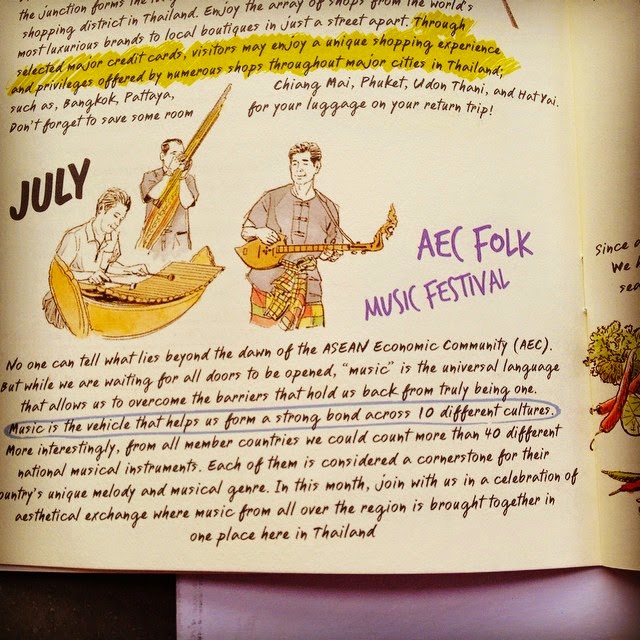 the junction forms the
shopping district in Thailand. Enjoy the array of shops from the world's
most luxurious brands to local boutiques in just a street apart. Through
selected major credit cards, visitors may enjoy a unique shopping experience
and privileges offered by numerous shops throughout major cities in Thailand;
such as, Bangkok, Pattaya, Chiang Mai, Phuket, Udon Thani, and Hat Yai.
Don't forget to save some room for your luggage on your return trip!
JULY
AEC FOLK
MUSIC FESTIVAL
No one can tell what lies beyond the dawn of the ASEAN Economic Community (AEC).
But while we are waiting for all doors to be opened, "music" is the universal language
that allows us to overcome the barriers that hold us back from truly being one.
Music is the vehicle that helps us form a strong bond across 10 different cultures.
More interestingly, from all member countries we could count more than 40 different
national musical instruments. Each of them is considered a cornerstone for their
country's unique melody and musical genre. In this month, join with us in a celebration of
aesthetical exchange where music from all over the region is brought together in
one place here in Thailand
Since
We